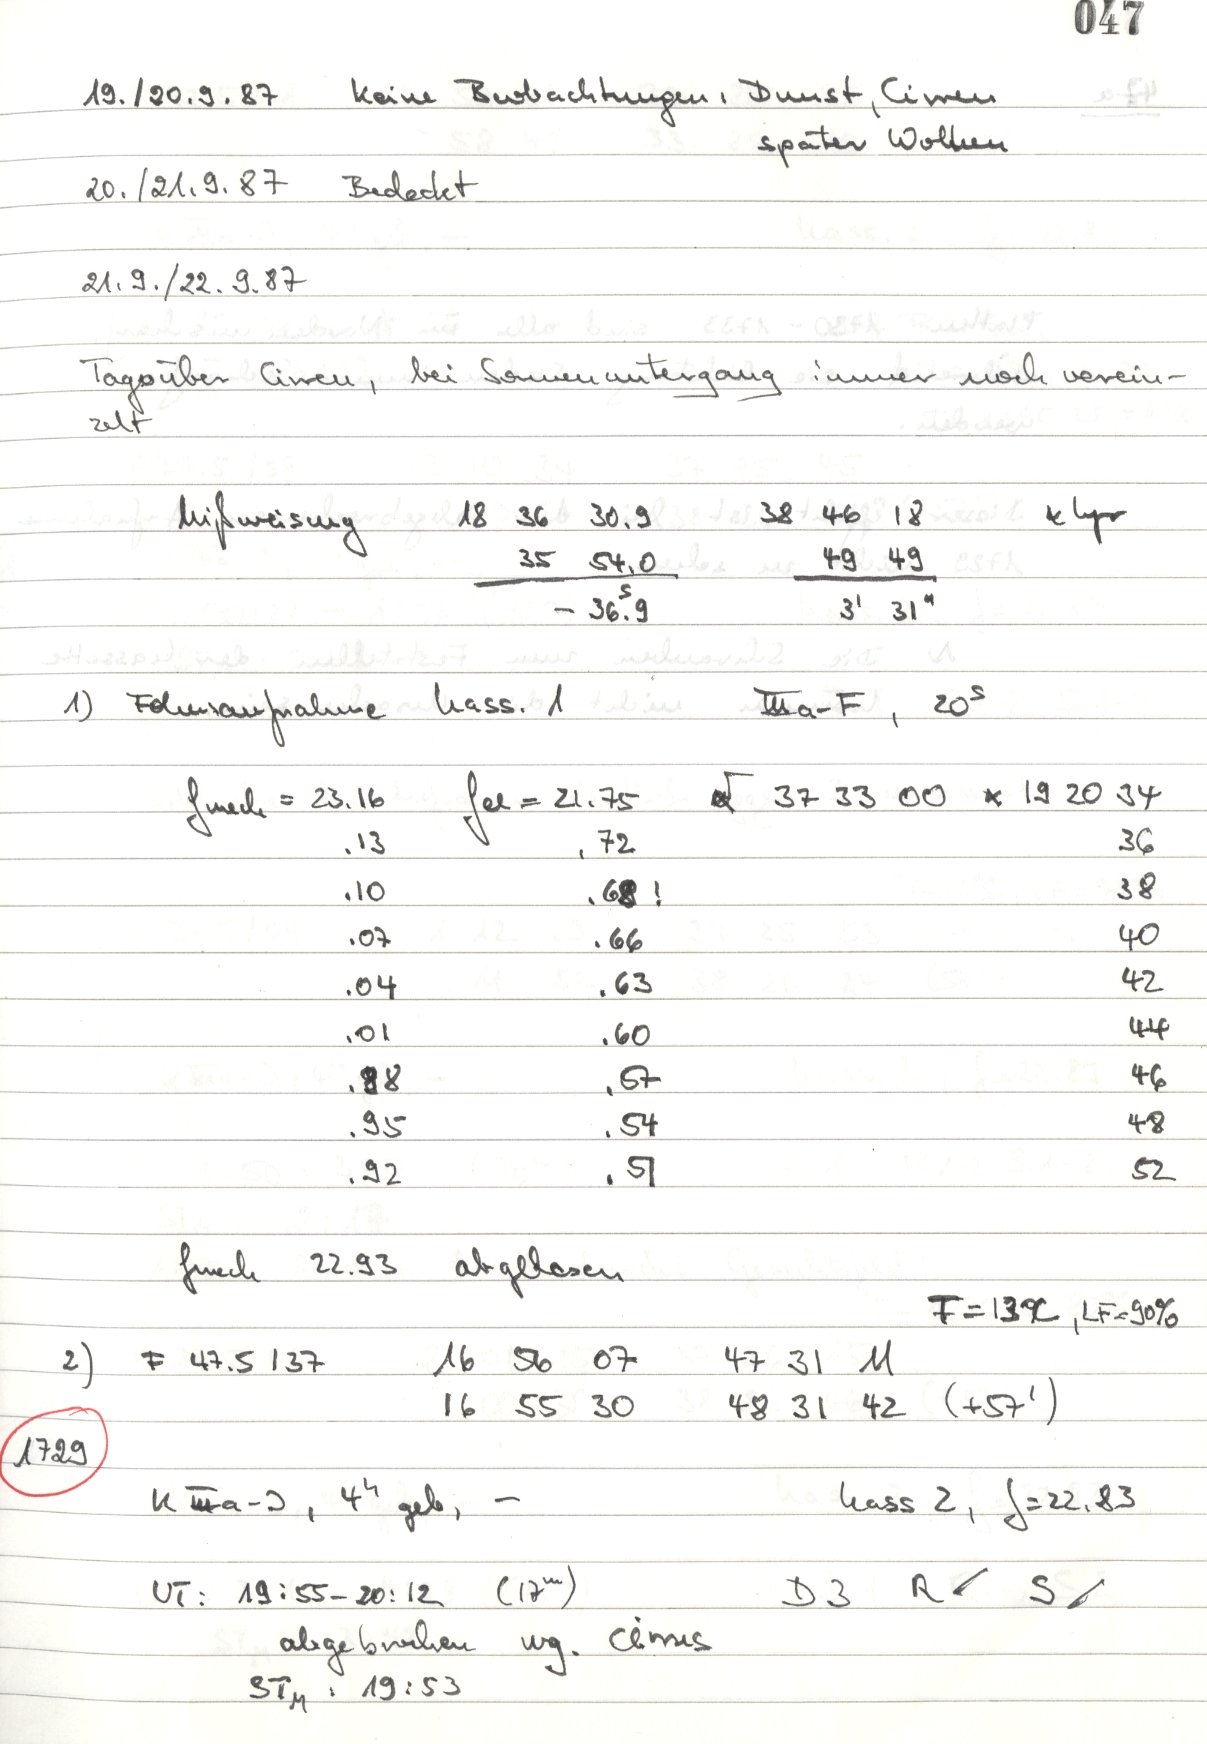 047
19./20.9.87 Keine Beobachtungen, Dunst, Cirren
später Wolken
20./21.9.87 Bedeckt
21.9./22.9.87
Tagsüber Cirren, bei Sonnenuntergang immer noch verein-
zelt
Mißweisung 18 36 30.9 38 46 18 α Lyr
35 54.0 49 49
- 36.ˢ9 3' 31"
1) Fokusaufnahme Kass. 1 IIIa-F, 20ˢ
fmech = 23.16 fel = 21.75 37 33 00 19 20 34
.13 .72 36
.10 .68! 38
.07 .66 40
.04 .63 42
.01 .60 44
.98 .57 46
.95 .54 48
.92 .51 52
fmech 22.93 abgelesen
T=13°C, LF=90%
2) F 47.5 137 16 56 07 47 31 11
16 55 30 48 31 42 (+57')
1729
K IIIa-J, 4ʰ geb, - Kass 2, f=22.83
UT: 19:55-20:12 (17ᵐ) D3 R ✓ S ✓
abgebrochen wg. Cirrus
STM: 19:53